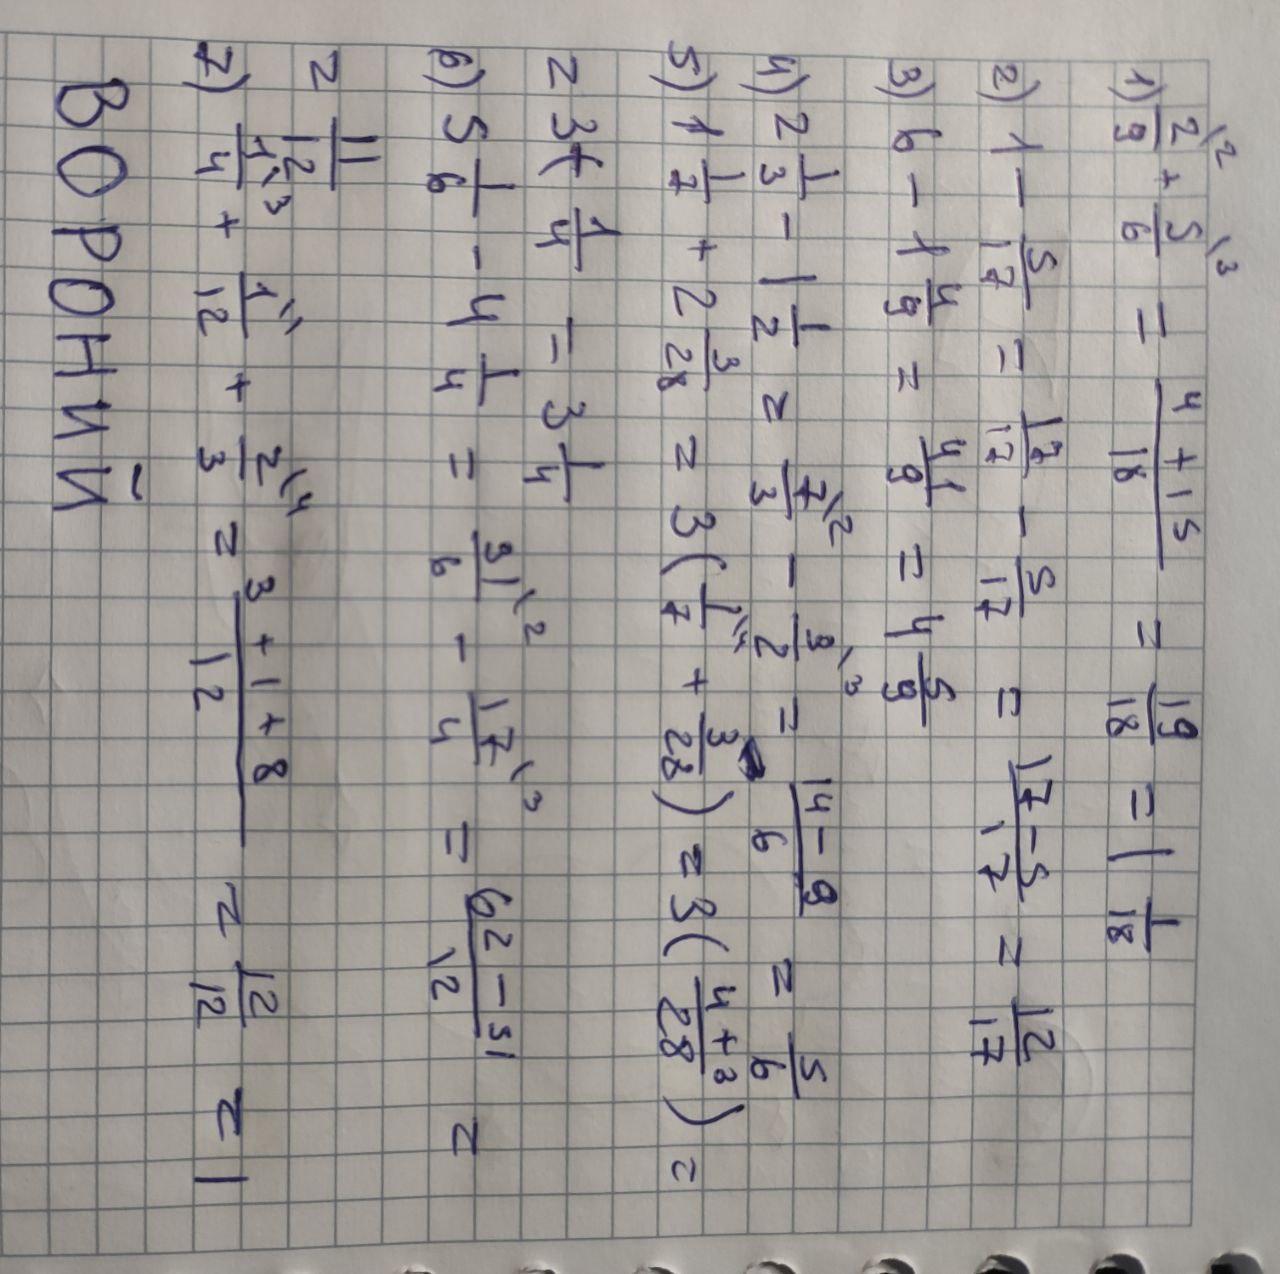 1) 2/9\2 + 5/6\3 = (4+15)/18 = 19/18 = 1 1/18
2) 1 - 5/17 = 17/17 - 5/17 = (17-5)/17 = 12/17
3) 6 - 1 4/9 = 41/9 = 4 5/9
4) 2 1/3 - 1 1/2 = 7/3\2 - 3/2\3 = (14-9)/6 = 5/6
5) 1 1/7 + 2 3/28 = 3(1/7\4 + 3/28) = 3((4+3)/28) =
= 3( 1/4 = 3 1/4
6) 5 1/6 - 4 1/4 = 31/6\2 - 17/4\3 = (62-51)/12 =
= 11/12
7) 1/4\3 + 1/12\1 + 2/3\4 = (3+1+8)/12 = 12/12 = 1
ВОРОНИЙ